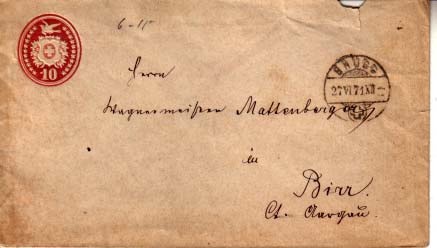 6-15
10
BRUGG
27 VI 71 XII
Herrn
Wagnermeister Mattenberger
in
Birr.
Ct. Aargau.